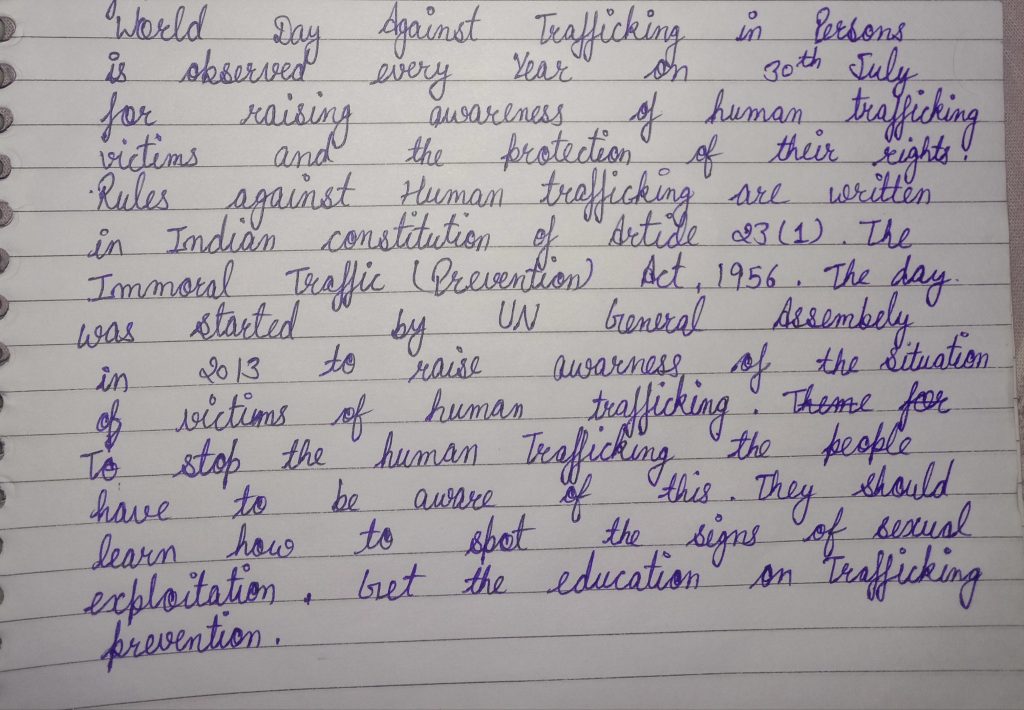 World Day Against Trafficking in Persons
is observed every Year on 30th July
for raising awareness of human trafficking
victims and the protection of their rights.
Rules against Human trafficking are written
in Indian constitution of Article 23(1). The
Immoral Traffic (Prevention) Act, 1956. The day
was started by UN General Assembely
in 2013 to raise awarness of the Situation
of victims of human trafficking. Theme for
To stop the human Trafficking the people
have to be aware of this. They should
learn how to spot the signs of sexual
exploitation. Get the education on Trafficking
prevention.